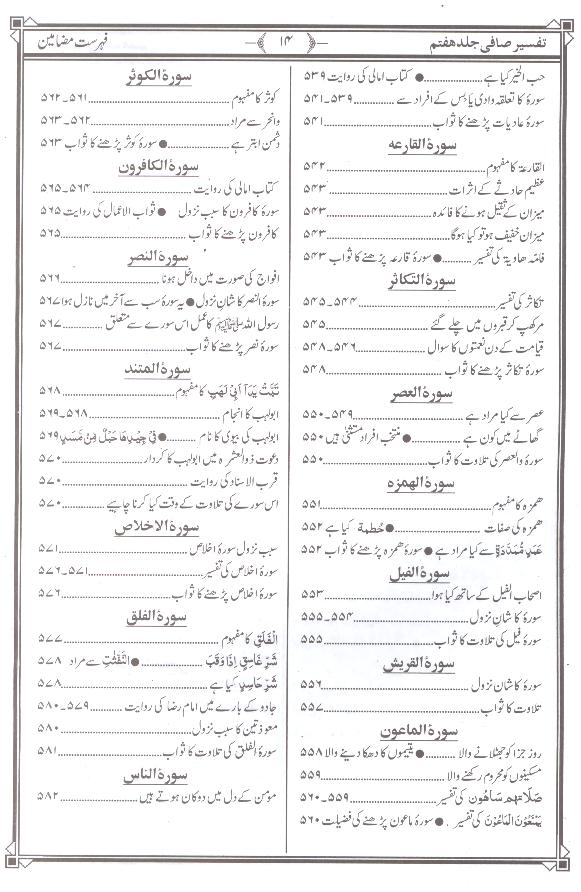 تفسیر صافی جلد ہفتم
۱۴
فہرست مضامین
حب الخیر کیا ہے ● کتاب امالی کی روایت ۵۳۹
سورہ کا تعلقہ وادی یابس کے افراد سے ۵۳۹۔۵۴۱
سورۂ عادیات پڑھنے کا ثواب ۵۴۱
سورۃ القارعه
القارعۃ کا مفہوم ۵۴۲
عظیم حادثے کے اثرات ۵۴۳
میزان کے ثقیل ہونے کا فائدہ ۵۴۳
میزان خفیف ہو تو کیا ہوگا ۵۴۳
فامّہ ھاویۃ کی تفسیر ● سورۂ قارعہ پڑھنے کا ثواب ۵۴۳
سورۃ التکاثر
تکاثر کی تفسیر ۵۴۴۔۵۴۵
مر کھپ کر قبروں میں چلے گئے ۵۴۵
قیامت کے دن نعمتوں کا سوال ۵۴۶۔۵۴۸
سورۂ تکاثر پڑھنے کا ثواب ۵۴۸
سورۃ العصر
عصر سے کیا مراد ہے ۵۴۹۔۵۵۰
گھاٹے میں کون ہے ● منتخب افراد مستثنیٰ ہیں ۵۵۰
سورۂ والعصر کی تلاوت کا ثواب ۵۵۰
سورۃ الهمزه
ھمزہ کا مفہوم ۵۵۱
ھمزہ کی صفات ● حُطمة کیا ہے ۵۵۲
عَمَدٍ مُّمَدَّدَةٍ سے کیا مراد ہے ● سورۂ ھمزہ پڑھنے کا ثواب ۵۵۲
سورۃ الفیل
اصحاب الفیل کے ساتھ کیا ہوا ۵۵۳
سورہ کا شان نزول ۵۵۴۔۵۵۵
سورۂ فیل کی تلاوت کا ثواب ۵۵۵
سورۃ القریش
سورہ کا شان نزول ۵۵۶
تلاوت کا ثواب ۵۵۷
سورۃ الماعون
روز جزا کو جھٹلانے والا ● یتیموں کا دھکا دینے والا ۵۵۸
مسکینوں کو محروم رکھنے والا ۵۵۹
صَلَاتِهِم سَاهُون کی تفسیر ۵۵۹۔۵۶۰
يَمْنَعُونَ الْمَاعُون کی تفسیر ● سورۂ ماعون پڑھنے کی فضیلت ۵۶۰
سورۃ الکوثر
کوثر کا مفہوم ۵۶۱۔۵۶۲
وانحر سے مراد ۵۶۲۔۵۶۳
دشمن ابتر ہے ● سورۂ کوثر پڑھنے کا ثواب ۵۶۳
سورۃ الکافرون
کتاب امالی کی روایت ۵۶۴۔۵۶۵
سورۂ کافرون کا سبب نزول ● ثواب الاعمال کی روایت ۵۶۵
کافرون پڑھنے کا ثواب ۵۶۵
سورۃ النصر
افواج کی صورت میں داخل ہونا ۵۶۶
سورۂ النصر کا شان نزول ● یہ سورہ سب سے آخر میں نازل ہوا ۵۶۷
رسول اللہ ﷺ کا عمل اس سورے سے متعلق ۵۶۷
سورۂ نصر پڑھنے کا ثواب ۵۶۷
سورۃ المتند
تَبَّتْ يَدَآ أَبِي لَهَبٍ کا مفہوم ۵۶۸
ابولہب کا انجام ۵۶۸۔۵۶۹
ابولہب کی بیوی کا نام ● فِي جِيدِهَا حَبْلٌ مِّن مَّسَدٍ ۵۶۹
دعوت ذوالعشیرہ میں ابولہب کا کردار ۵۷۰
قرب الاسناد کی روایت ۵۷۰
اس سورے کی تلاوت کے وقت کیا کرنا چاہیے ۵۷۰
سورۃ الاخلاص
سبب نزول سورۂ اخلاص ۵۷۱
سورۂ اخلاص کی تفسیر ۵۷۱۔۵۷۶
سورۂ اخلاص پڑھنے کا ثواب ۵۷۶
سورۃ الفلق
الْفَلَقِ کا مفہوم ۵۷۷
شَرِّ غَاسِقٍ إِذَا وَقَبَ ● النَّفّٰثٰتِ سے مراد ۵۷۸
شَرِّ حَاسِدٍ کیا ہے ۵۷۸
جادو کے بارے میں امام رضا کی روایت ۵۷۹۔۵۸۰
معوذتین کا سبب نزول ۵۸۰
سورۃ الفلق کی تلاوت کا ثواب ۵۸۱
سورۃ الناس
مومن کے دل میں دو کان ہوتے ہیں ۵۸۲